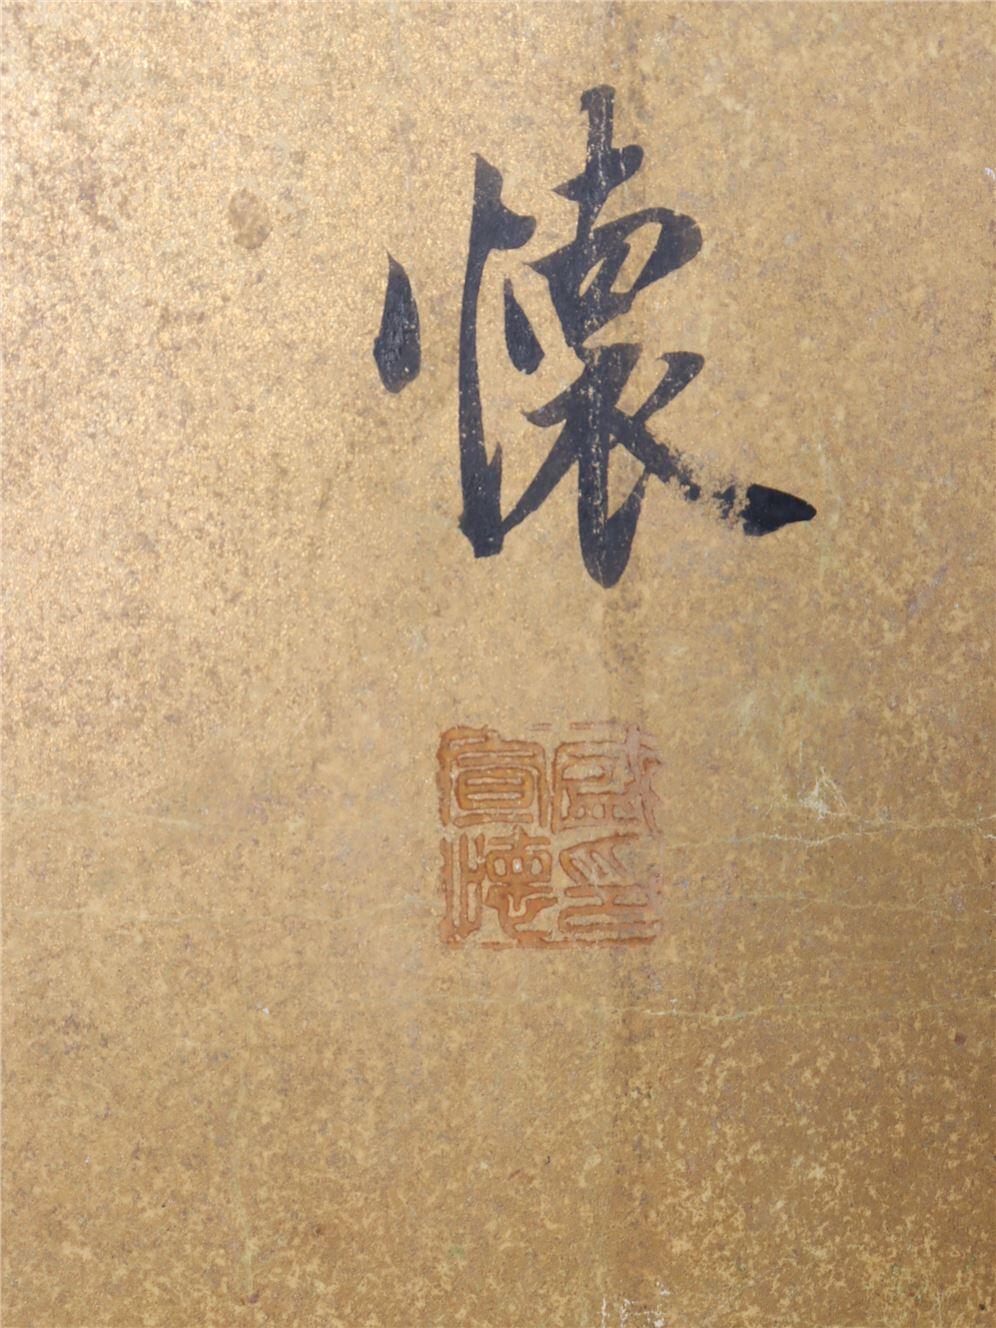 懷
盛印
宣懷